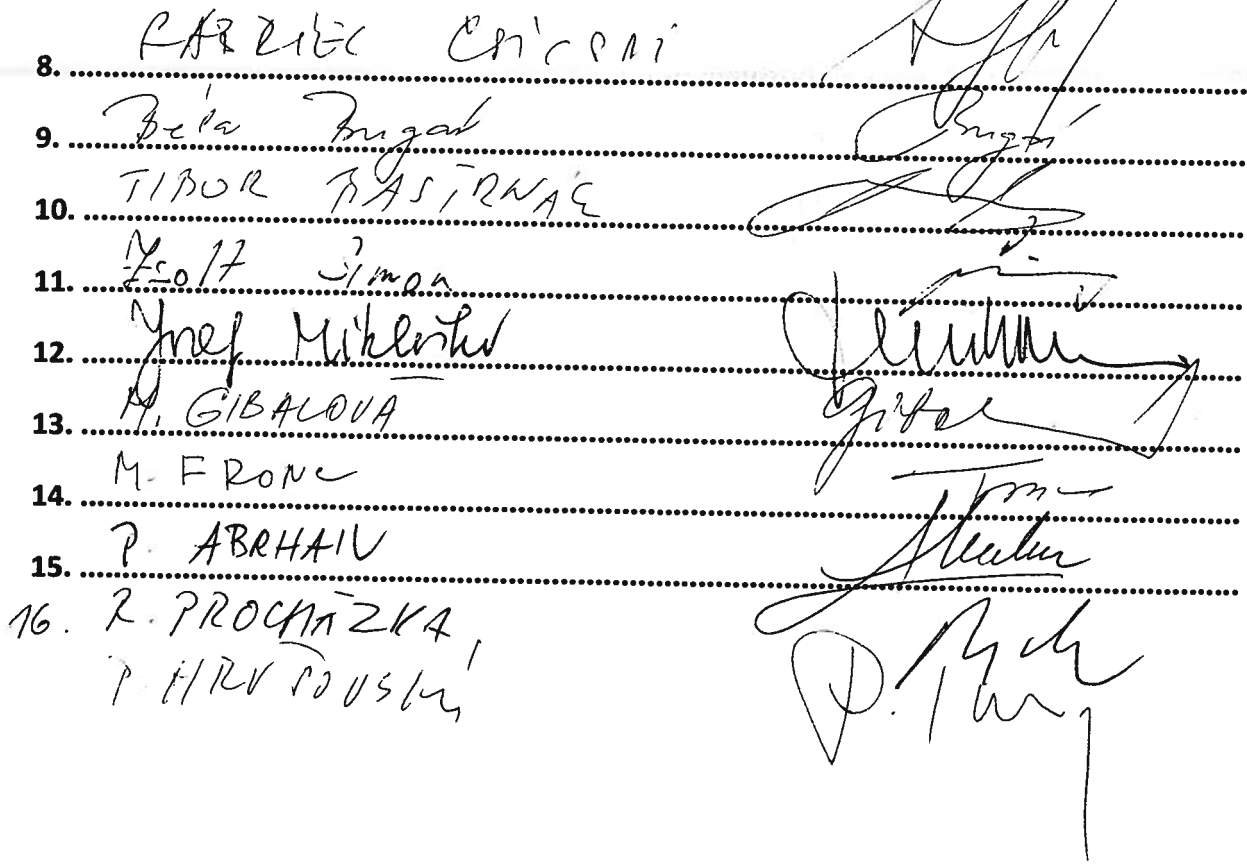 8. GÁBRIEL CSICSAI
9. Béla Bugár Bugár
10. TIBOR BASTRNÁK
11. Zsolt Simon
12. Jozef Mikloško
13. M. GIBALOVÁ Gibal
14. M. FRONC Fronc
15. P ABRHAN
16. R. PROCHÁZKA,
P HRUŠOVSKÝ